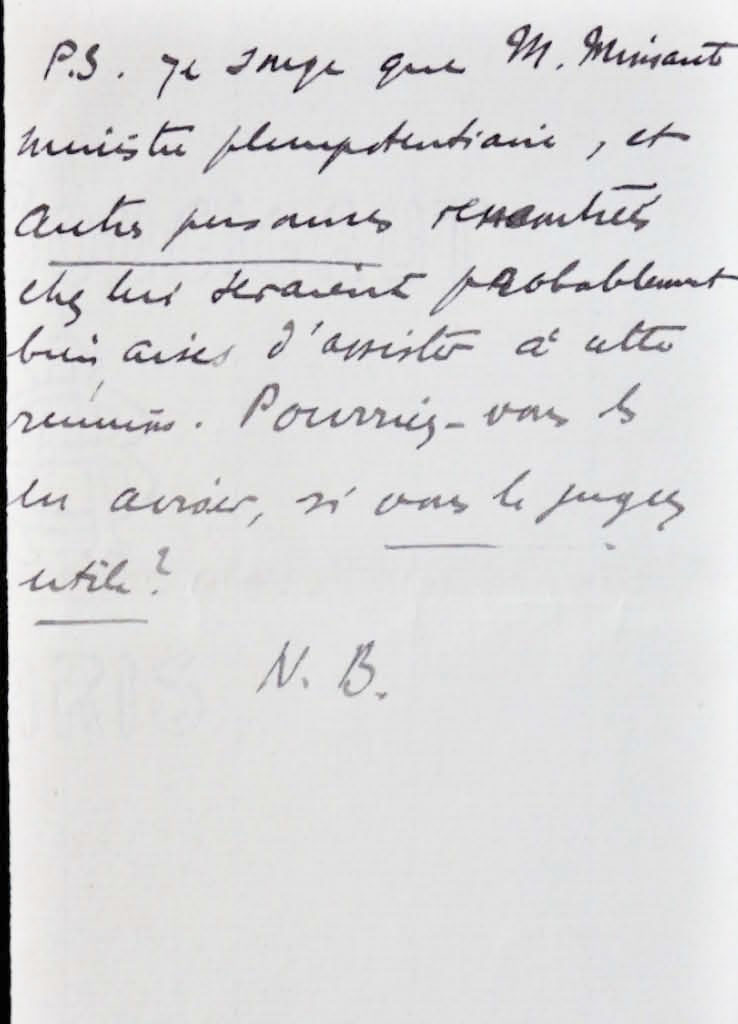 P.S. Je songe que M.
ministre plenipotentiaire, et
autres personnes rencontrées
chez lui seraient probablement
bien aises d'assister à cette
réunion. Pourriez-vous les
en aviser, si vous le jugez
utile?
N. B.